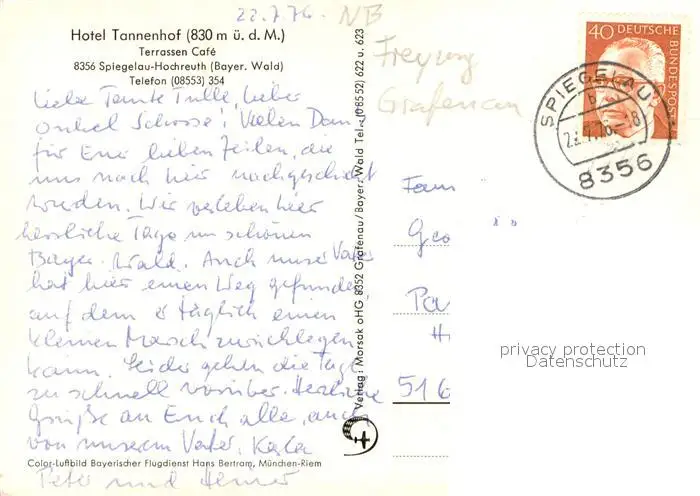 22.7.76. NB
Hotel Tannenhof (830 m ü. d. M.)
Terrassen Café
8356 Spiegelau-Hochreuth (Bayer. Wald)
Telefon (08553) 354
Liebe Tante Tulle, lieber
Onkel Schosse! Vielen Dank
für Eure lieben Zeilen, die
uns nach hier nachgeschickt
wurden. Wir verleben hier
herrliche Tage im schönen
Bayer. Wald. Auch unser Vater
hat hier einen Weg gefunden
auf dem er täglich einen
kleinen Marsch zurücklegen
kann. Leider gehen die Tage
zu schnell vorüber. Herzliche
Grüße an Euch alle, auch
von unserem Vater, Karla
Peter und
Color-Luftbild Bayerischer Flugdienst Hans Bertram, München-Riem
Verlag: Morsak oHG 8352 Grafenau/Bayer. Wald Tel. (085 52) 622 u. 623
Freyung
Grafenau
40 DEUTSCHE BUNDESPOST
SPIEGELAU
b
8356
Fam
Geo
Pa
H
516
privacy protection
Datenschutz